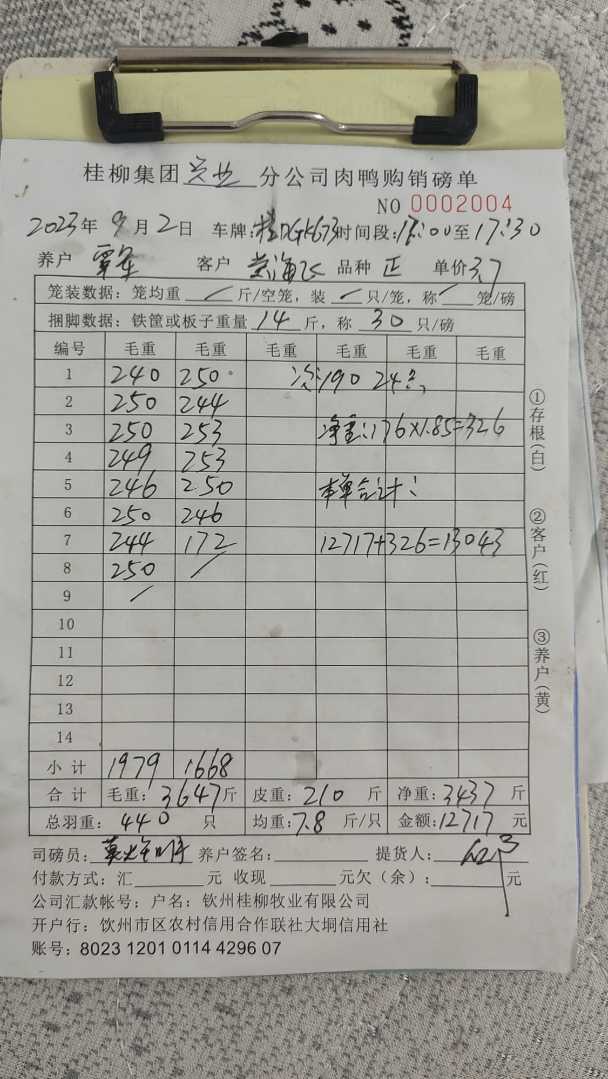 桂柳集团兴业分公司肉鸭购销磅单
NO 0002004
2023年9月2日 车牌:桂DGK673 时间段:17:00至17:30
养户 覃军 客户 黄海飞 品种 正 单价3.7
笼装数据：笼均重 / 斤/空笼，装 / 只/笼，称 / 笼/磅
捆脚数据：铁筐或板子重量 14 斤，称 30 只/磅
编号 毛重 毛重 毛重 毛重 毛重 毛重
1 240 250 次:190 24只
2 250 244
3 250 253 净重:176×1.85=326
4 249 253
5 246 250 本单合计:
6 250 246
7 244 172 12717+326=13043
8 250 /
9 /
10
11
12
13
14
小计 1979 1668
合计 毛重：3647斤 皮重：210 斤 净重：3437 斤
总羽重：440 只 均重：7.8 斤/只 金额：12717 元
司磅员： 养户签名： 提货人：
付款方式：汇 元 收现 元欠（余）： 元
公司汇款帐号：户名：钦州桂柳牧业有限公司
开户行：饮州市区农村信用合作联社大垌信用社
账号：8023 1201 0114 4296 07
①存根(白)
②客户(红)
③养户(黄)